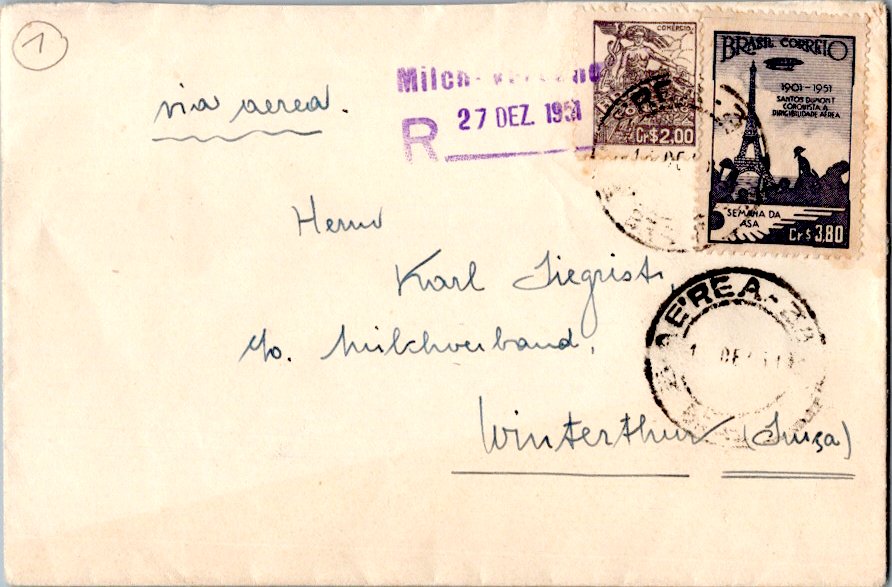 1
via aerea.
Milch-
R 27 DEZ. 1951
COMÉRCIO
Cr$2,00
BRASIL CORREIO
1901-1951
SANTOS DUMONT
CORONISTA A
DIRIGIBILIDADE AÉREA
SEMANA DA
ASA
Cr$ 3,80
Herrn
Karl Siegrist,
c/o. Milchverband,
Winterthur (Suiça)
AEREA-
DEZ